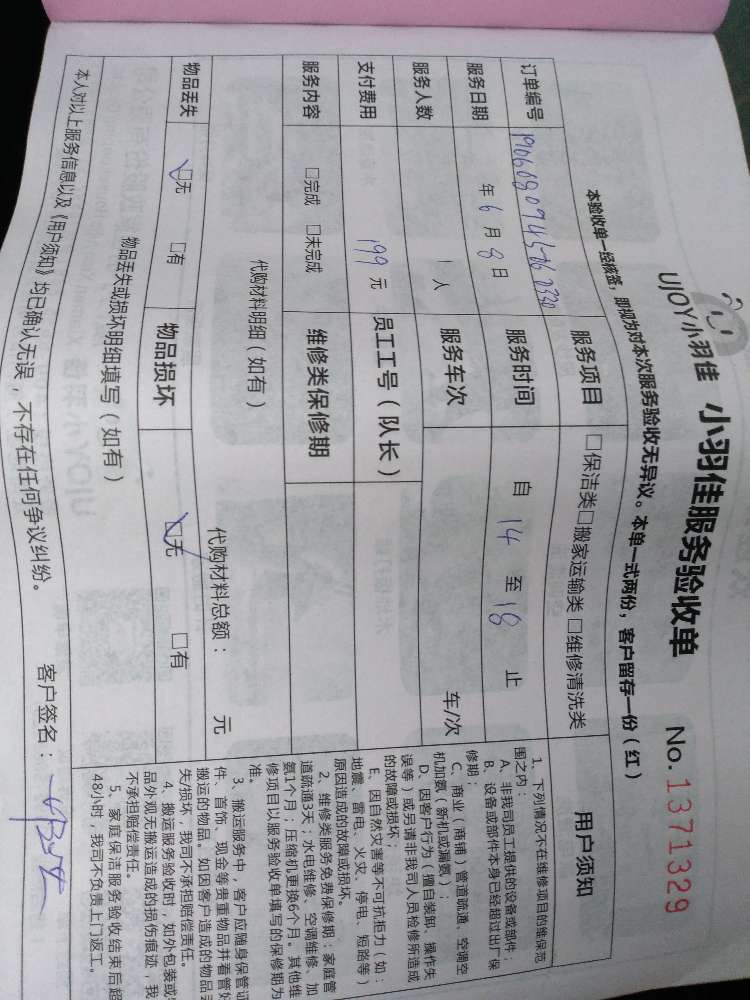 UJOY小羽佳 小羽佳服务验收单 No. 1371329
本验收单一经核签，即视为对本次服务验收无异议。本单一式两份，客户留存一份（红）
订单编号
服务项目 □保洁类□搬家运输类 □维修清洗类
服务日期 年 6 月 8 日 服务时间 自 14 至 18 止
服务人数 1 人 服务车次 车/次
支付费用 199 元 员工工号（队长）
服务内容 □完成 □未完成 维修类保修期
代购材料明细（如有） 代购材料总额： 元
物品丢失 □无 □有 物品损坏 □无 □有
物品丢失或损坏明细填写（如有）
本人对以上服务信息以及《用户须知》均已确认无误，不存在任何争议纠纷。
客户签名：
用户须知
1、下列情况不在维修项目的维保范
围之内：
A、非我司员工提供的设备或部件；
B、设备或部件本身已经超过出厂保
修期；
C、商业（商铺）管道疏通、空调空
机加氨（新机或漏氨）；
D、因客户行为（擅自装卸、操作失
误等）或另请非我司人员检修所造成
的故障或损坏；
E、因自然灾害等不可抗拒力（如：
地震、雷电、火灾、停电、短路等）
原因造成的故障或损坏。
2、维修类服务免费保修期：家庭管
道疏通3天；水电维修、空调维修、加
氨1个月；压缩机更换6个月。其他维
修项目以服务验收单填写的保修期为
准。
3、搬运服务中，客户应随身保管证
件、首饰、现金等贵重物品并看管好
搬运的物品。如因客户造成的物品丢
失/损坏，我司不承担赔偿责任。
4、搬运服务验收时，如外包装或
品外观无搬运造成的损伤痕迹，我
不承担赔偿责任。
5、家庭保洁服务验收结束后超
48小时，我司不负责上门返工。